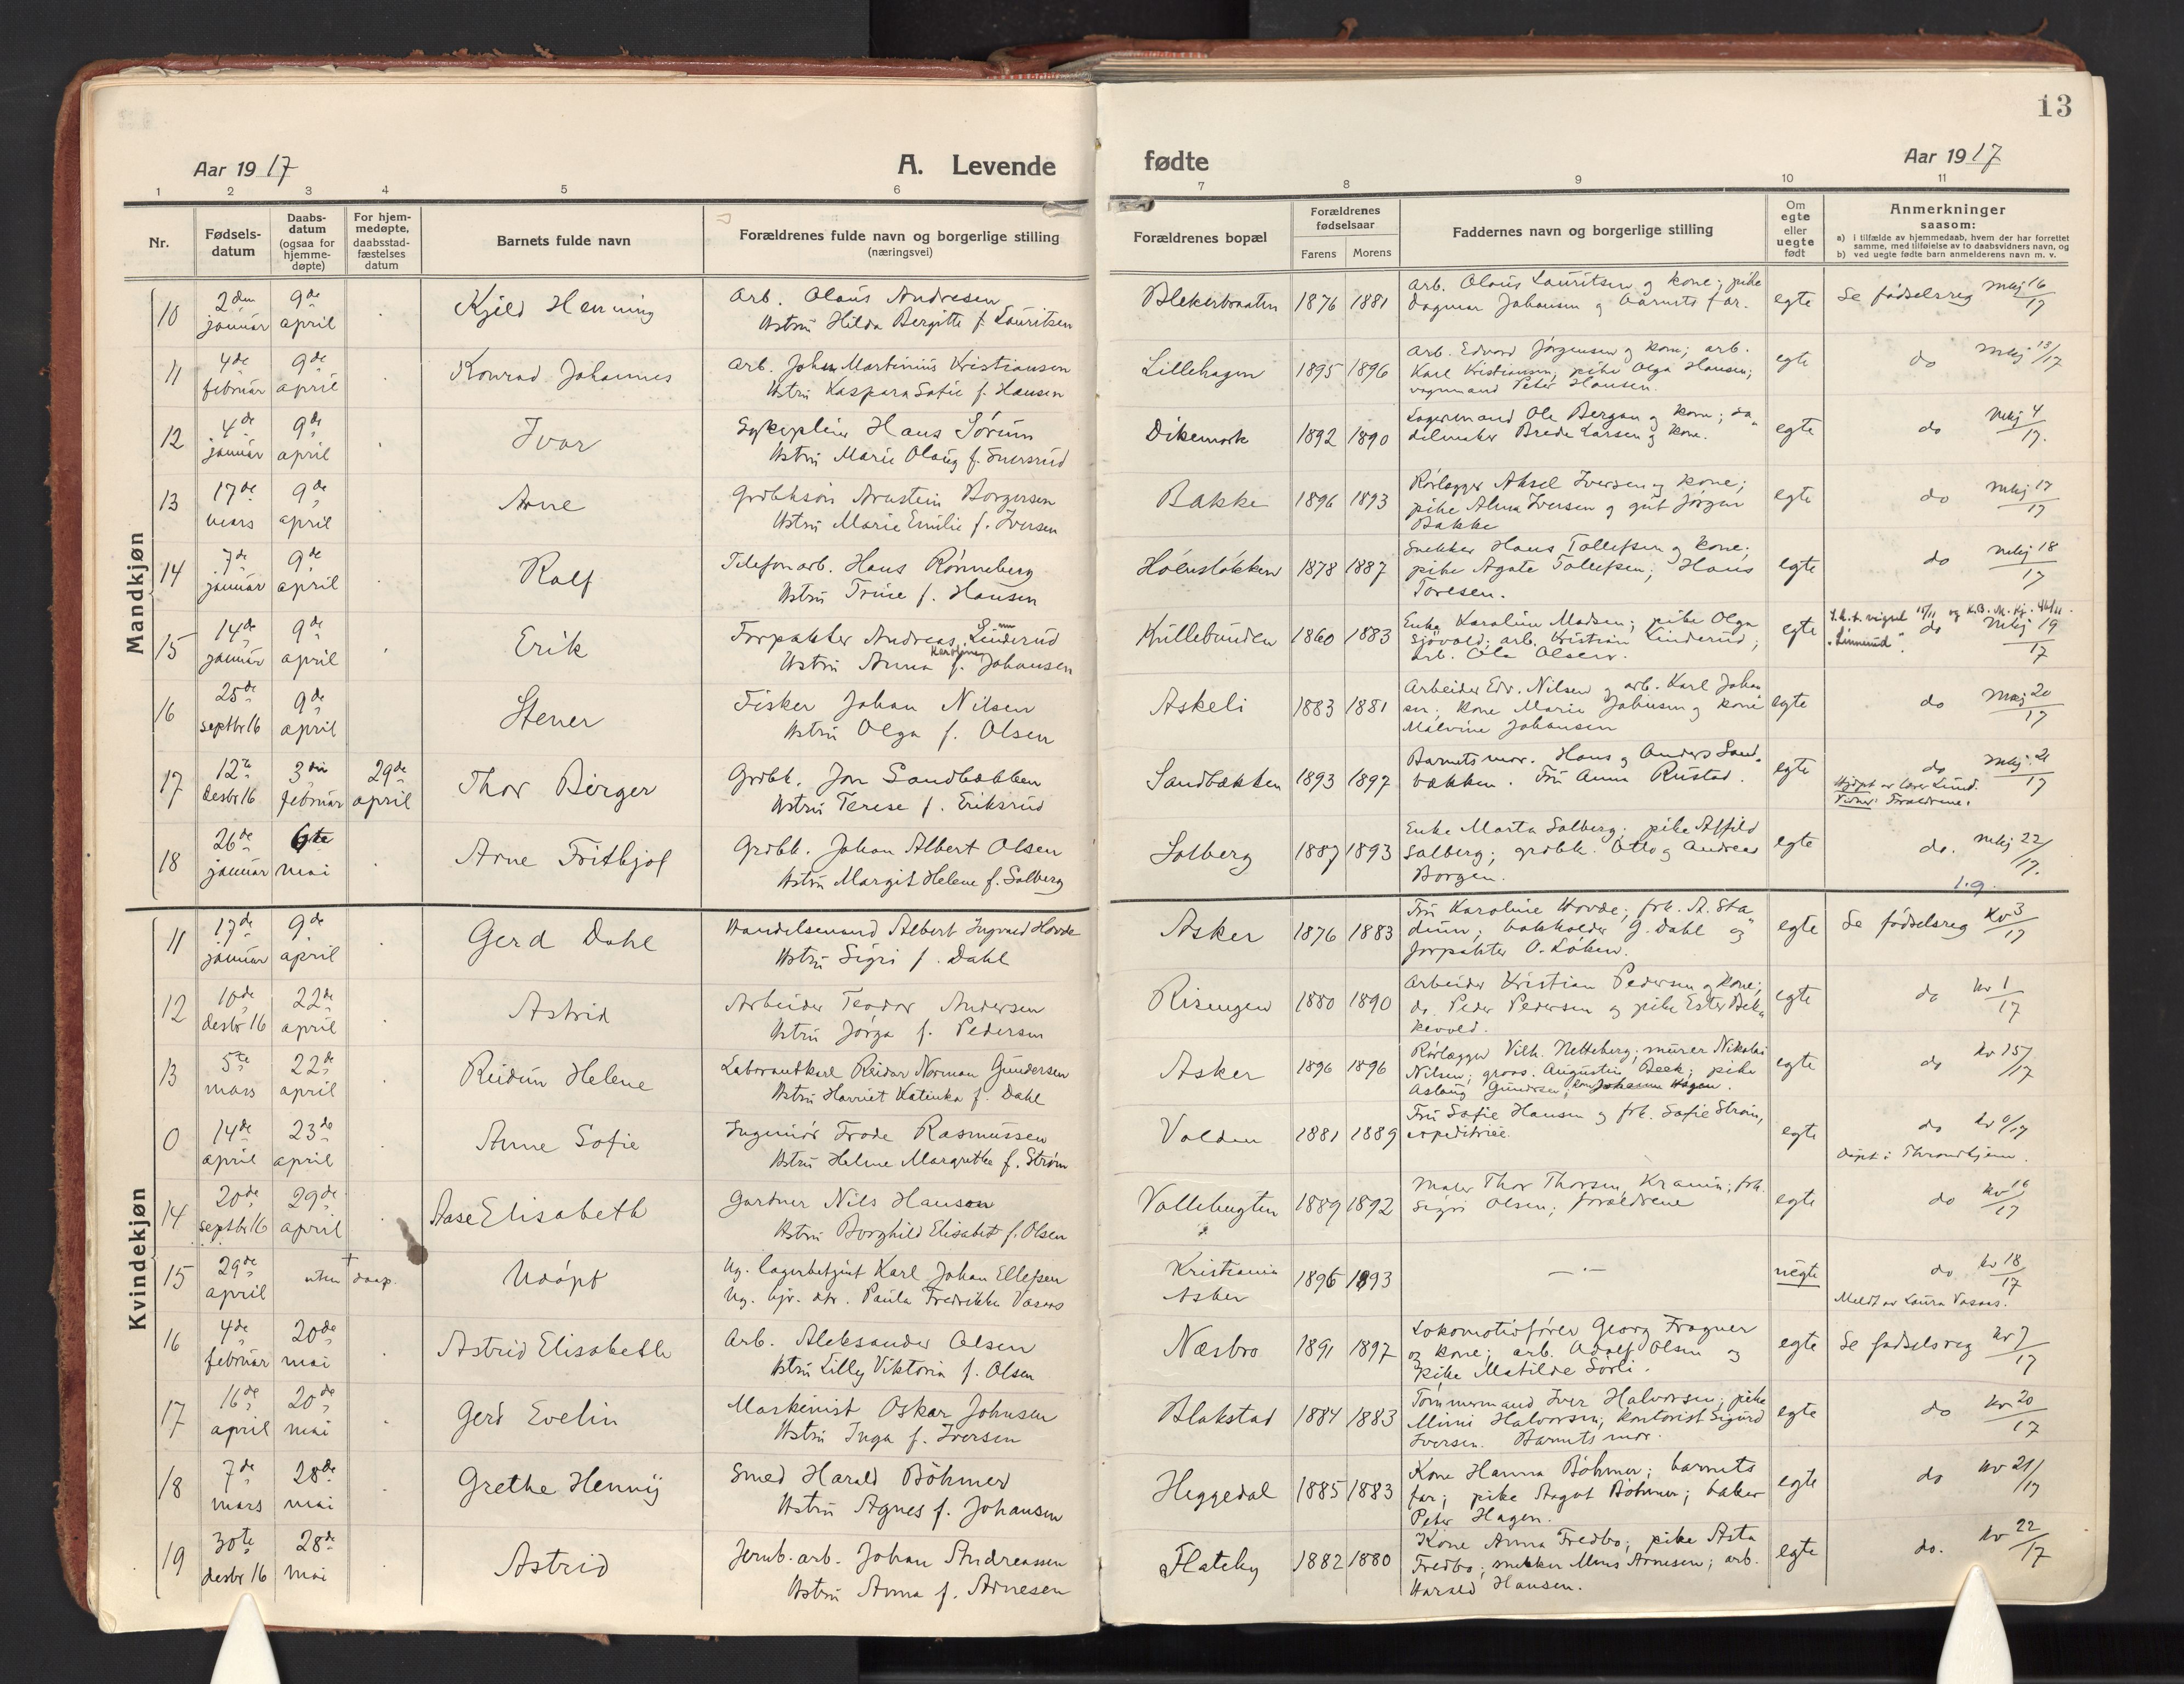 13
Aar 1917
A. Levende
fødte
Aar 1917
1 2 3 4 5 6 7 8 9 10 11
Nr.
Fødsels-
datum
Daabs-
datum
(ogsaa for
hjemme-
døpte)
For hjem-
medøpte,
daabsstad-
fæstelses
datum
Barnets fulde navn
Forældrenes fulde navn og borgerlige stilling
(næringsvei)
Forældrenes bopæl
Forældrenes
fødselsaar
Farens Morens
Faddernes navn og borgerlige stilling
Om
egte
eller
uegte
født
Anmerkninger
saasom:
a) i tilfælde av hjemmedaab, hvem der har forrettet
samme, med tilføielse av to daabsvidners navn, og
b) ved uegte fødte barn anmelderens navn m. v.
Mandkjøn
10 2den januar 9de april Kjeld Henning
Arb. Olaus Andresen
Hstru Hilda Bergitte f. Lauritsen
Blekerbraaten 1876 1881
Arb. Olaus Lauritsen og kone; pike
Dagmar Johansen og barnets far.
egte Se fødselsreg Mkj 16/17
11 4de februar 9de april Konrad Johannes
Arb. Johan Martinius Kristiansen
Hstru Kaspara Sofie f. Hansen
Lillehagen 1895 1896
Arb. Edvard Jørgensen og kone; arb.
Karl Kristiansen, pike Olga Hansen;
vognmand Peter Hansen.
egte do Mkj 13/17
12 4de januar 9de april Ivar
Sykepleier Hans Sørum
Hstru Marie Olaug f.
Dikemark 1892 1890
Lagermand Ole Bergan og kone; sa„
delmaker Brede Larsen og kone.
egte do Mkj 4/17.
13 17de mars 9de april Arne
Grdbksøn Arnstein Borgersen
Hstru Marie Emilie f. Iversen
Bakke 1896 1893
Rørlægger Aksel Iversen og kone;
pike Alma Iversen og gut Jørgen
Bakke
egte do Mkj 17/17
14 7de januar 9de april Ralf
Telefonarb. Hans Rønneberg
Hstru Trine f. Hansen
1878 1887
Snekker Hans Tollefsen og kone;
pike Agate Tollefsen; Hans
Toresen.
egte do Mkj 18/17
15 14de januar 9de april Erik
Forpakter Andreas Linderud
Hstru Anna f. Johansen
Kullebunden 1860 1883
Enke Karoline Madsen; pike Olga
Sjøvold; arb. Kristian Linderud;
Arb. Ole Olsen.
egte do Mkj 19/17
„Linnerud“.
16 25de septbr 16 9de april Stener
Fisker Johan Nilsen
Hstru Olga f. Olsen
Askeli 1883 1881
Arbeider Edv. Nilsen og arb. Karl Johan„
sen; kone Marie Johnsen og kone
Malvine Johansen
egte do Mkj 20/17
17 12te desbr 16 3die februar 29de april Thor Birger
Grdbk. Jon Sandbækken
Hstru Terese f. Eriksrud
Sandbækken 1893 1897
Barnets mor. Hans og Anders Sand„
bækken. Fru Anna Rustad.
egte do Mkj 21/17
Hjdøpt av lærer Lund.
Vidner: Forældrene.
18 26de januar 6te mai Arne Fritkjof
Grdbk. Johan Albert Olsen
Hstru Margit Helene f. Solberg
Solberg 1887 1893
Enke Marta Solberg; pike Alfild
Solberg; grdbk. Otto og Andreas
Borgen.
egte do. Mkj 22/17.
1.9.
Kvindekjøn
11 17de januar 9de april Gerd Dahl
Handelsmand Albert Ingvald Hovde
Hstru Sigri f. Dahl
Asker 1876 1883
Fru Karoline Hovde; frk. A. Sta„
dium; bokholder G. Dahl og
forpakter O. Løken.
egte Se fødselsreg Kv 3/17
12 10de desbr 16 22de april Astrid
Arbeider Teodor Andersen
Hstru Jørga f. Pedersen
Risengen 1880 1890
Arbeider Kristian Pedersen og kone;
do. Peder Pedersen og pike Ester Bek„
kevold.
egte do Kv 1/17
13 5te mars 22de april Reidun Helene
Laborantkarl Reidar Norman Gundersen
Hstru Harriet Katinka f. Dahl
Asker 1896 1896
Rørlægger Vilh. Netteberg; murer Nikolai
Nilsen; gross. Augustin Beck; pike
Aslaug Gundersen; Johanne Hagen.
egte do Kv 15/17
0 14de april 23de april Anne Sofie
Ingeniør Frode Rasmussen
Hstru Helene Margrethe f. Strøm
Valden 1881 1889
Fru Sofie Hansen og frk. Sofie Strøm,
expeditrise.
egte do Kv 6/17
Døpt i Throndhjem.
14 20de septbr 16 29de april Aase Elisabeth
Gartner Nils Hansen
Hstru Borghild Elisabet f. Olsen
Vollebugten 1889 1892
Maler Thor Thorsen, Krania; frk.
Sigri Olsen; forældrene
egte do Kv 16/17
15 29de april uten daap. + Udøpt
Ug. lagerbetjent Karl Johan Ellefsen
Ug. hjv. dtr. Paula Fredrikke Vasaas
Kristiania
Asker
1896 1893
— · —
uegte do Kv 18/17
Meldt av Laura Vasaas.
16 4de februar 20de mai Astrid Elisabeth
Arb. Aleksander Olsen
Hstru Lilly Viktoria f. Olsen
Næsbro 1891 1897
Lokomotivfører Georg Fragner
og kone; arb. Adolf Olsen og
pike Matilde Sørli.
egte Se fødselsreg Kv 7/17
17 16de april 20de mai Gerd Evelin
Maskinist Oskar Johnsen
Hstru Inga f. Iversen
Blakstad 1884 1883
Tømmermand Iver Halvorsen; pike
Mimi Halvorsen; kontorist Sigurd
Iversen. Barnets mor.
egte do Kv 20/17
18 7de mars 28de mai Grethe Henny
Smed Harald Böhmer
Hstru Agnes f. Johansen
Heggedal 1885 1883
Kone Hanna Böhmer; barnets
far; pike Aagot Böhmer; baker
Peter Hagen.
egte do Kv 21/17
19 30te desbr 16 28de mai Astrid
Jernb. arb. Johan Andreassen
Hstru Anna f. Arnesen
Flateby 1882 1880
Kone Anna Fredbo; pike Asta
Fredbo; snekker Mons Arnesen; arb.
Harald Hansen.
egte do. Kv 22/17